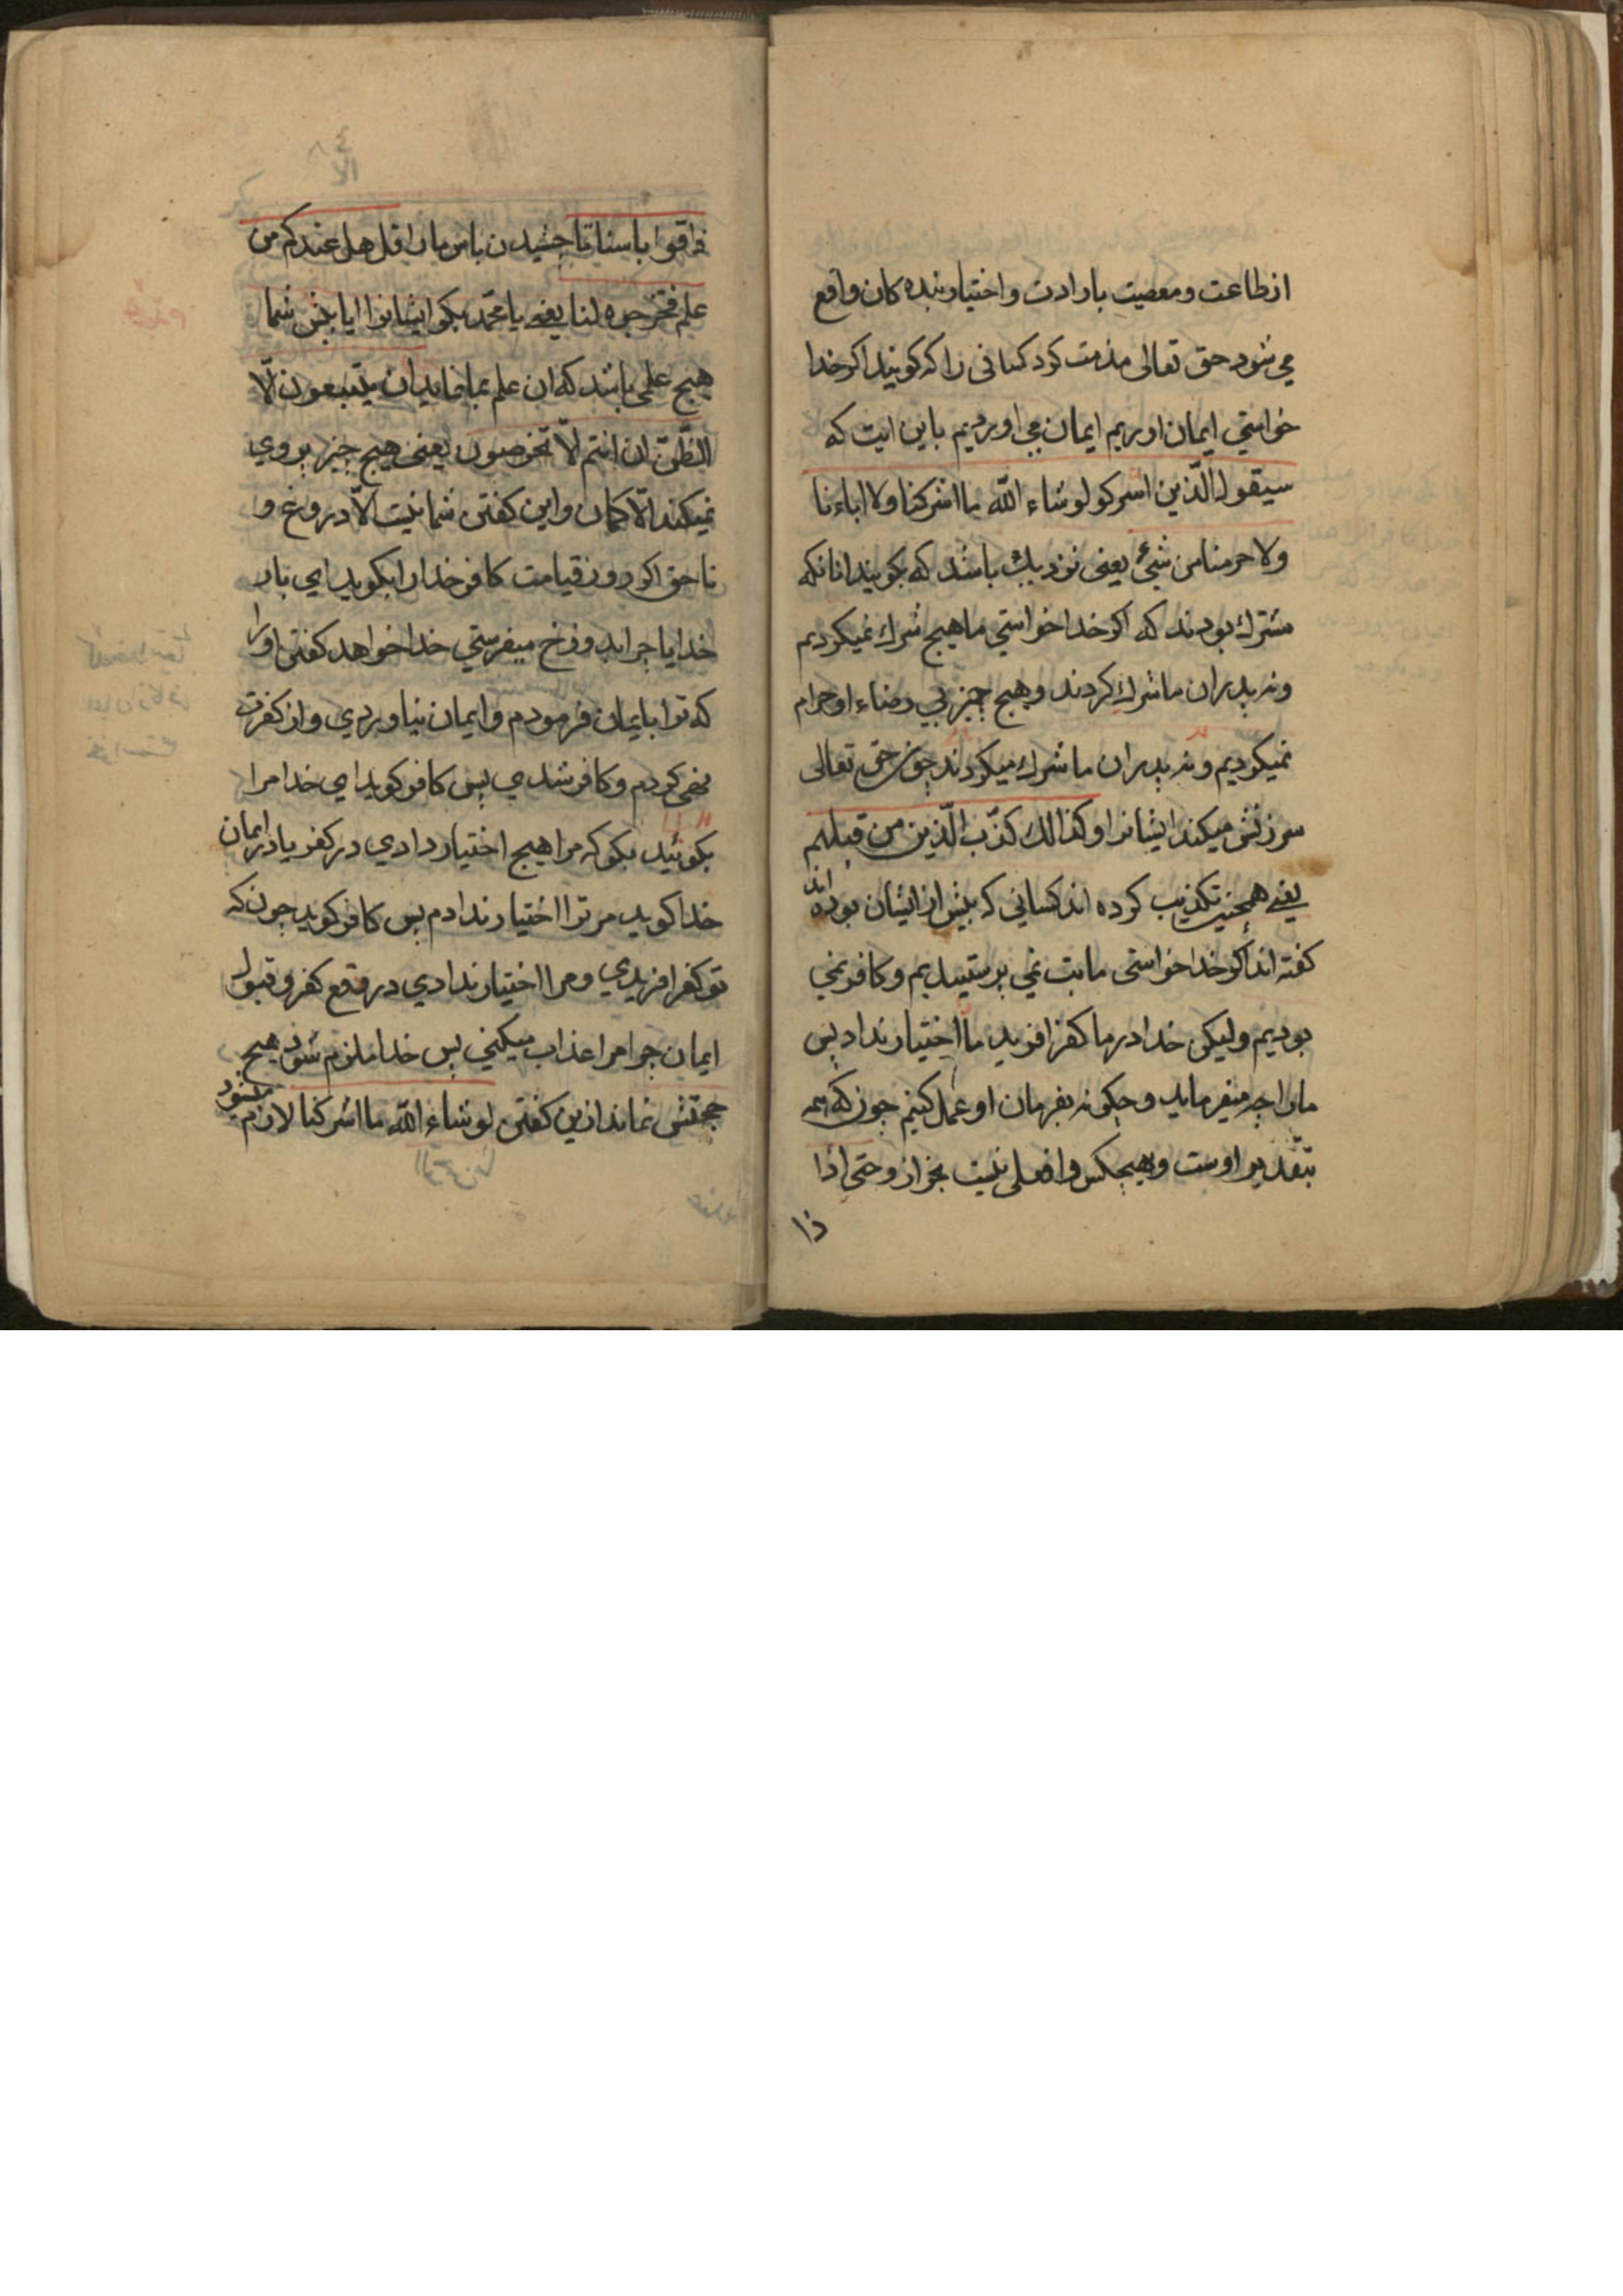 از طاعت و معصیت بارادت و اختیار بنده کان واقع
می شود حق تعالی مذمت کرد کسانی را که کویند اکر خدا
خواستی ایمان اوریم ایمان می اوردیم باین ایت که
سیقول الّذین اشرکو لو شاء اللّه ما اشرکنا ولا اباءنا
ولا حرمنا من شیٔ یعنی نزدیك باشد که بکویند انانکه
مشرك بودند که اکر خدا خواستی ما هیچ شرك نمیکردیم
و نه پدران ما شرك کردند و هیچ چیز بی رضاء او حرام
نمیکردیم و نه پدران ما شرك میکردند چون حق تعالی
سرزنش میکند ایشانرا و کذالك کذّب الّذین من قبلهم
یعنے همچنین تکذیب کرده اند کسانی که پیش از ایشان بوده اند
کفته اند اکر خدا خواستی ما بت نمی پرستیدیم و کافر نمی
بودیم ولیکن خدا در ما کفر افرید ما را اختیار نداد پس
مارا چه میفرماید و چکونه بفرمان او عمل کنیم چون که همه
بتقدیر اوست و هیچکس را فعلی نیست بجز از و حتی اذا
ذا
ذاقوا باسنا تا چشیدن باس مارا قل هل عندکم من
علم فتخرجوه لنا یعنے یا محمّد بکو ایشانرا ایا پیش شما
هیچ علمی باشد که ان علم بما نمایید ان یتبعون الّا
الظّنّ ان انتم الّا تخرصون یعنی هیچ چیز پروی
نمیکند الّا کمان و این کفتن شما نیست الّا دروغ و
نا حق اکر روز قیامت کافر خدارا بکوید ای بار
خدایا چرا بدوزخ میفرستی خدا خواهد کفتن او را
که ترا بایمان فرمودم و ایمان نیاوردی و از کفرت
نهی کردم و کافر شدی پس کافر کوید ای خدا مرا
بکوئید بکو که مرا هیچ اختیار دادی در کفر یا در ایمان
خدا کوید مر ترا اختیار ندادم پس کافر کوید چون که
تو کفر افریدی و مرا اختیار ندادی در وقع کفر و قبول
ایمان چرا مرا عذاب میکنی پس خدا ملزم شود هیچ
حجتش نماند ازین کفتن لو شاء اللّه ما اشرکنا لازم میشود